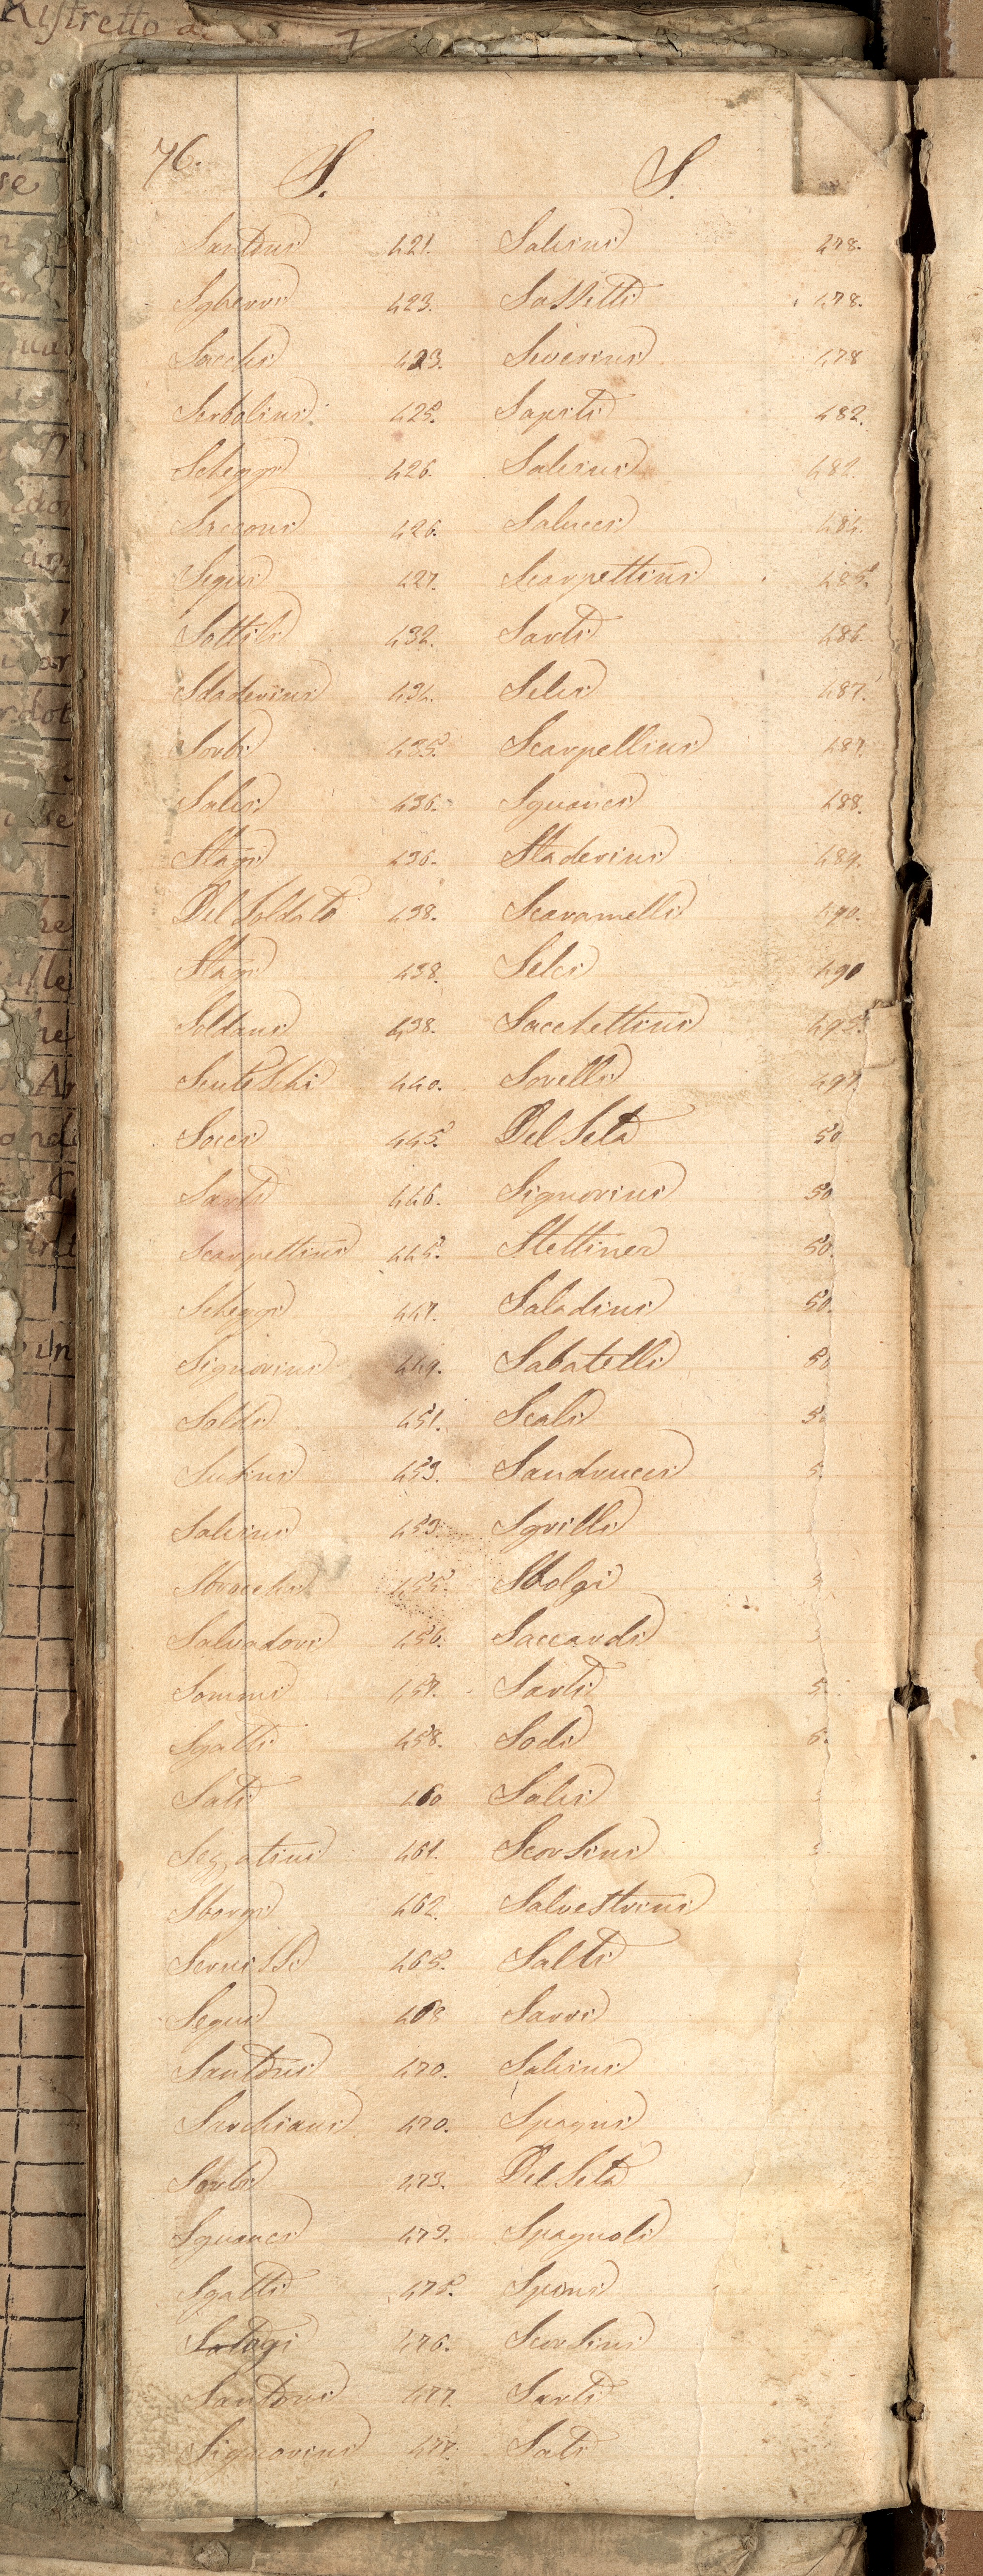 Ristretto d
76.
S. S.
Santoni 421. Salvini 478.
Sgherri 423. Sassetti 478.
Sacchi 423. Severini 478
Serbolini 425. Sapiti 482.
Scheggi 426. Salvini 482.
Sacconi 426. Salucci 484.
Segni 427. Scarpettini 485.
Sottili 432. Sarti 486.
Staderini 434. Selvi 487.
Sorbi 435. Scarpellini 487.
Salvi 436. Sguanci 488.
Stagi 436. Staderini 489.
Del Soldato 438. Scaramelli 490.
Stagi 438. Selci 490
Soldani 438. Sacchettini 495.
Scuteschi 440. Sorelli 497.
Socci 445. Del Seta 50
Sarti 446. Signorini 50
Scarpettini 445. Stettiner 50.
Scheggi 447. Saladini 50.
Signorini 449. Sabatelli 50
Soldi 451. Scali 5
Susini 453. Sandrucci 5.
Salvini 453. Sgrilli
Stracchi 455. Stolgi
Salvadori 456. Saccardi
Sommi 457. Sarti 5.
Sgatti 458. Sodi 5.
Sati 460 Salvi
461. Scorsini
Sborgi 462. Salvestrini
Sernissi 465. Salti
Segni 468 Sarri
Santoni 470. Salvini
Serchiani 470. Spagni
Sorbi 473. Del Seta
Sguanci 473. Spagnoli
Sgatti 475. Spini
476. Scorsini
Santoni 477. Sarti
Signorini 477. Sati